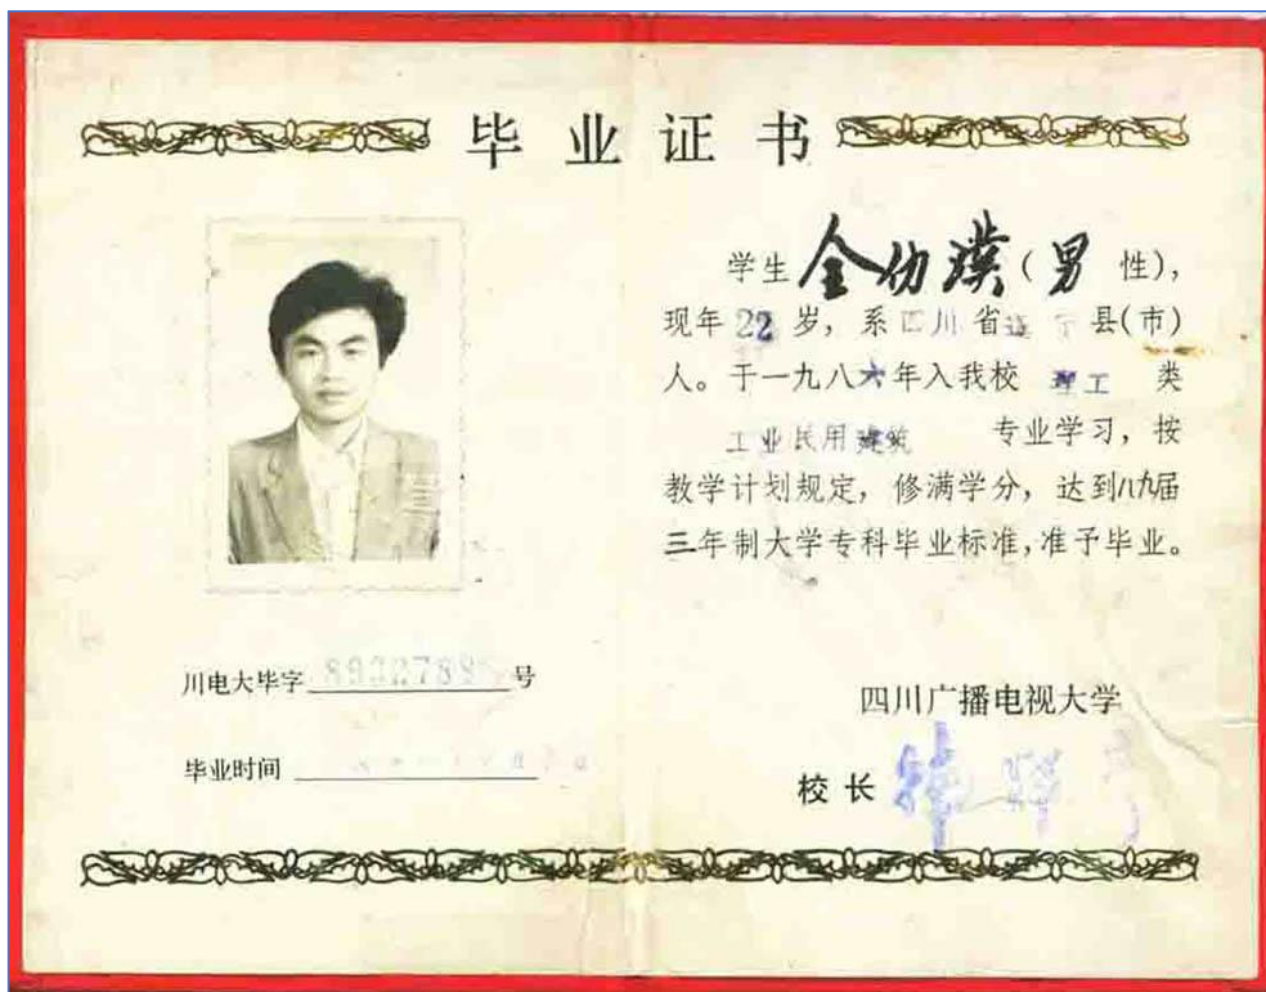 毕业证书
学生 全仂璞 ( 男 性),
现年 22 岁, 系四川省遂宁县(市)
人。于一九八六年入我校 理工 类
工业民用建筑 专业学习, 按
教学计划规定, 修满学分, 达到八九届
三年制大学专科毕业标准,准予毕业。
川电大毕字 号
毕业时间
四川广播电视大学
校长